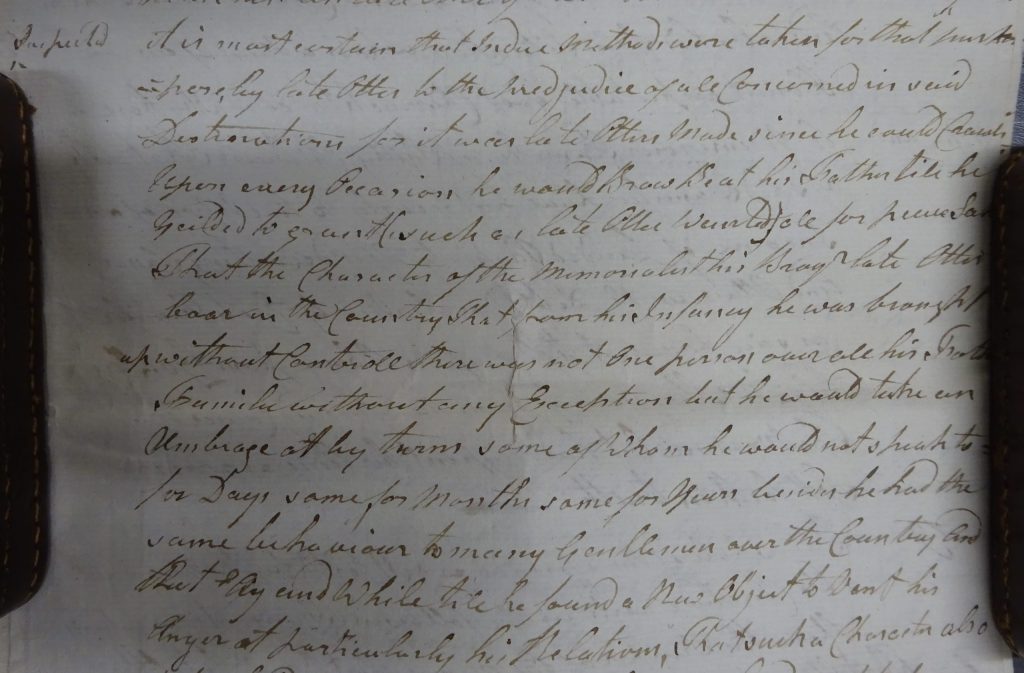 Suspected
it is most certain that Indue Methods were taken for that pur=
=pose, by late Otter to the predjudice of all Concerned in said
Destinations for it was late Otters Made since he could
Upon every Occasion he would Brow Beat his Father till he
Yeilded to grant (such as late Otter Wanted) all for peace Sake
That the Character of the Memorialist his Broyr late Otter
boar in the Country That from his Infancy he was brought
up without Controll there was not One person over all his
Familie without any Exception but he would take an
Umbrage at by turns some of Whom he would not speak to=
for Days some for Months some for Years besides he had the
same behaviour to many Gentlemen over the Country And
that Ay and While till he found a New Object to Vent his
Anger at particularly his Relations, That such a Character also